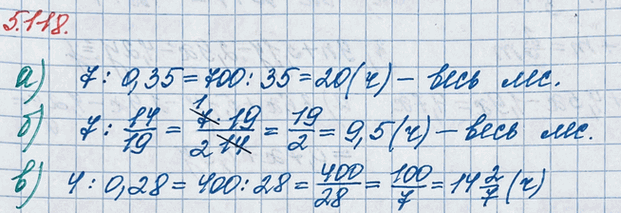 5.118.
а) 7 : 0,35 = 700 : 35 = 20 (ч) – весь лес.
б) 7 : 14/19 = 7 · 19 / 14 = 19/2 = 9,5 (ч) – весь лес.
в) 4 : 0,28 = 400 : 28 = 400/28 = 100/7 = 14 2/7 (ч)